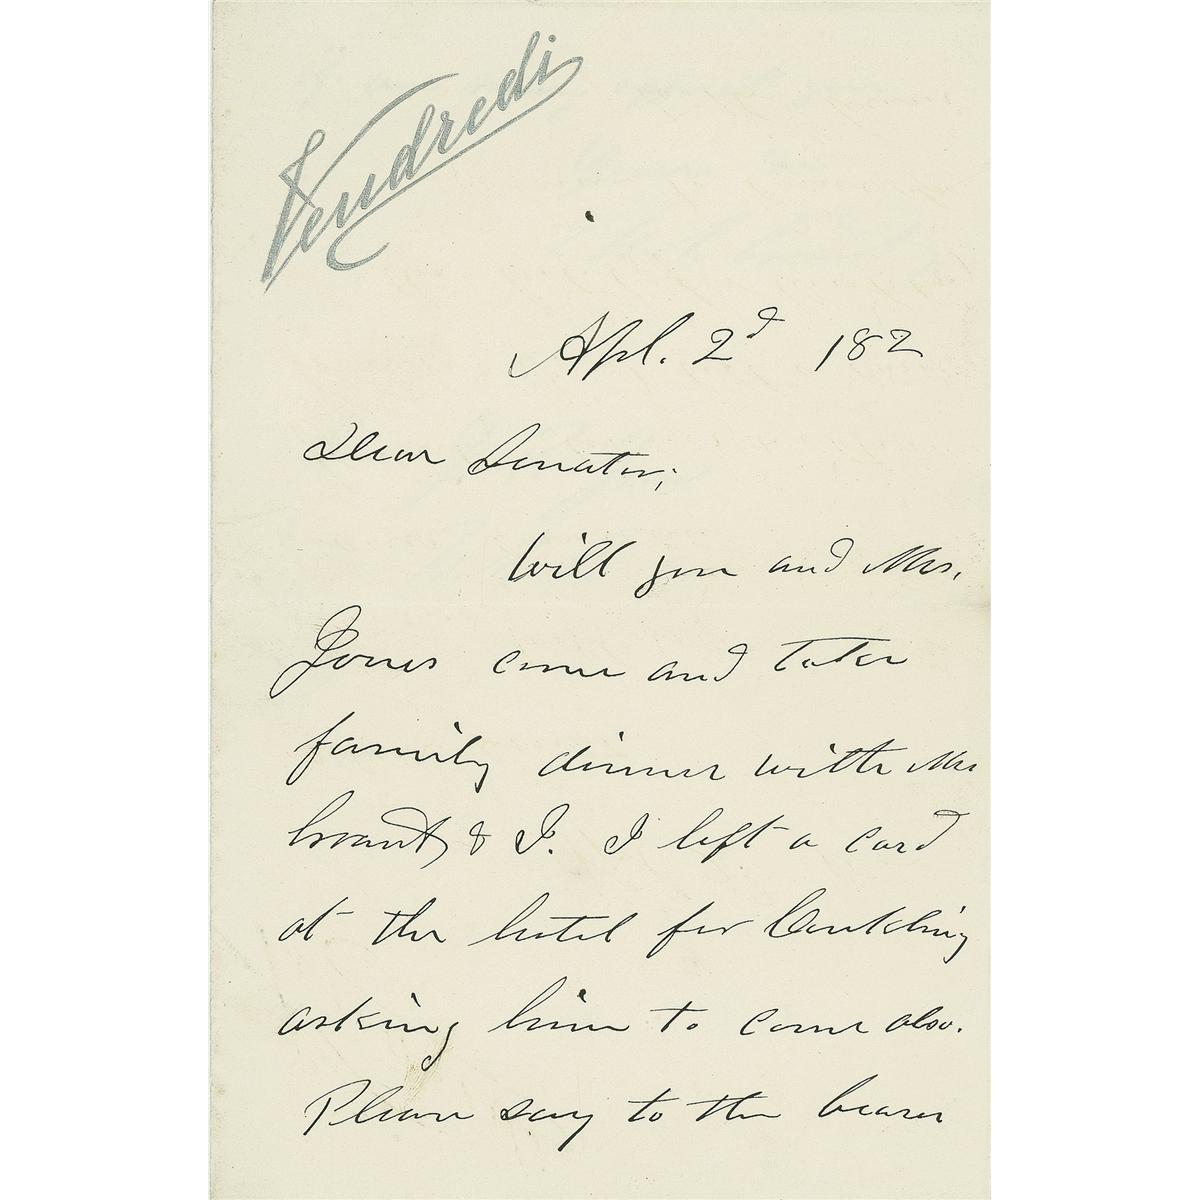 Vendredi
Apl. 2d 182
Dear Senator;
Will you and Mrs.
Jones come and take
family dinner with Mrs
Grant & I. I left a card
at the hotel for Conkling
asking him to come also.
Please say to the bearer